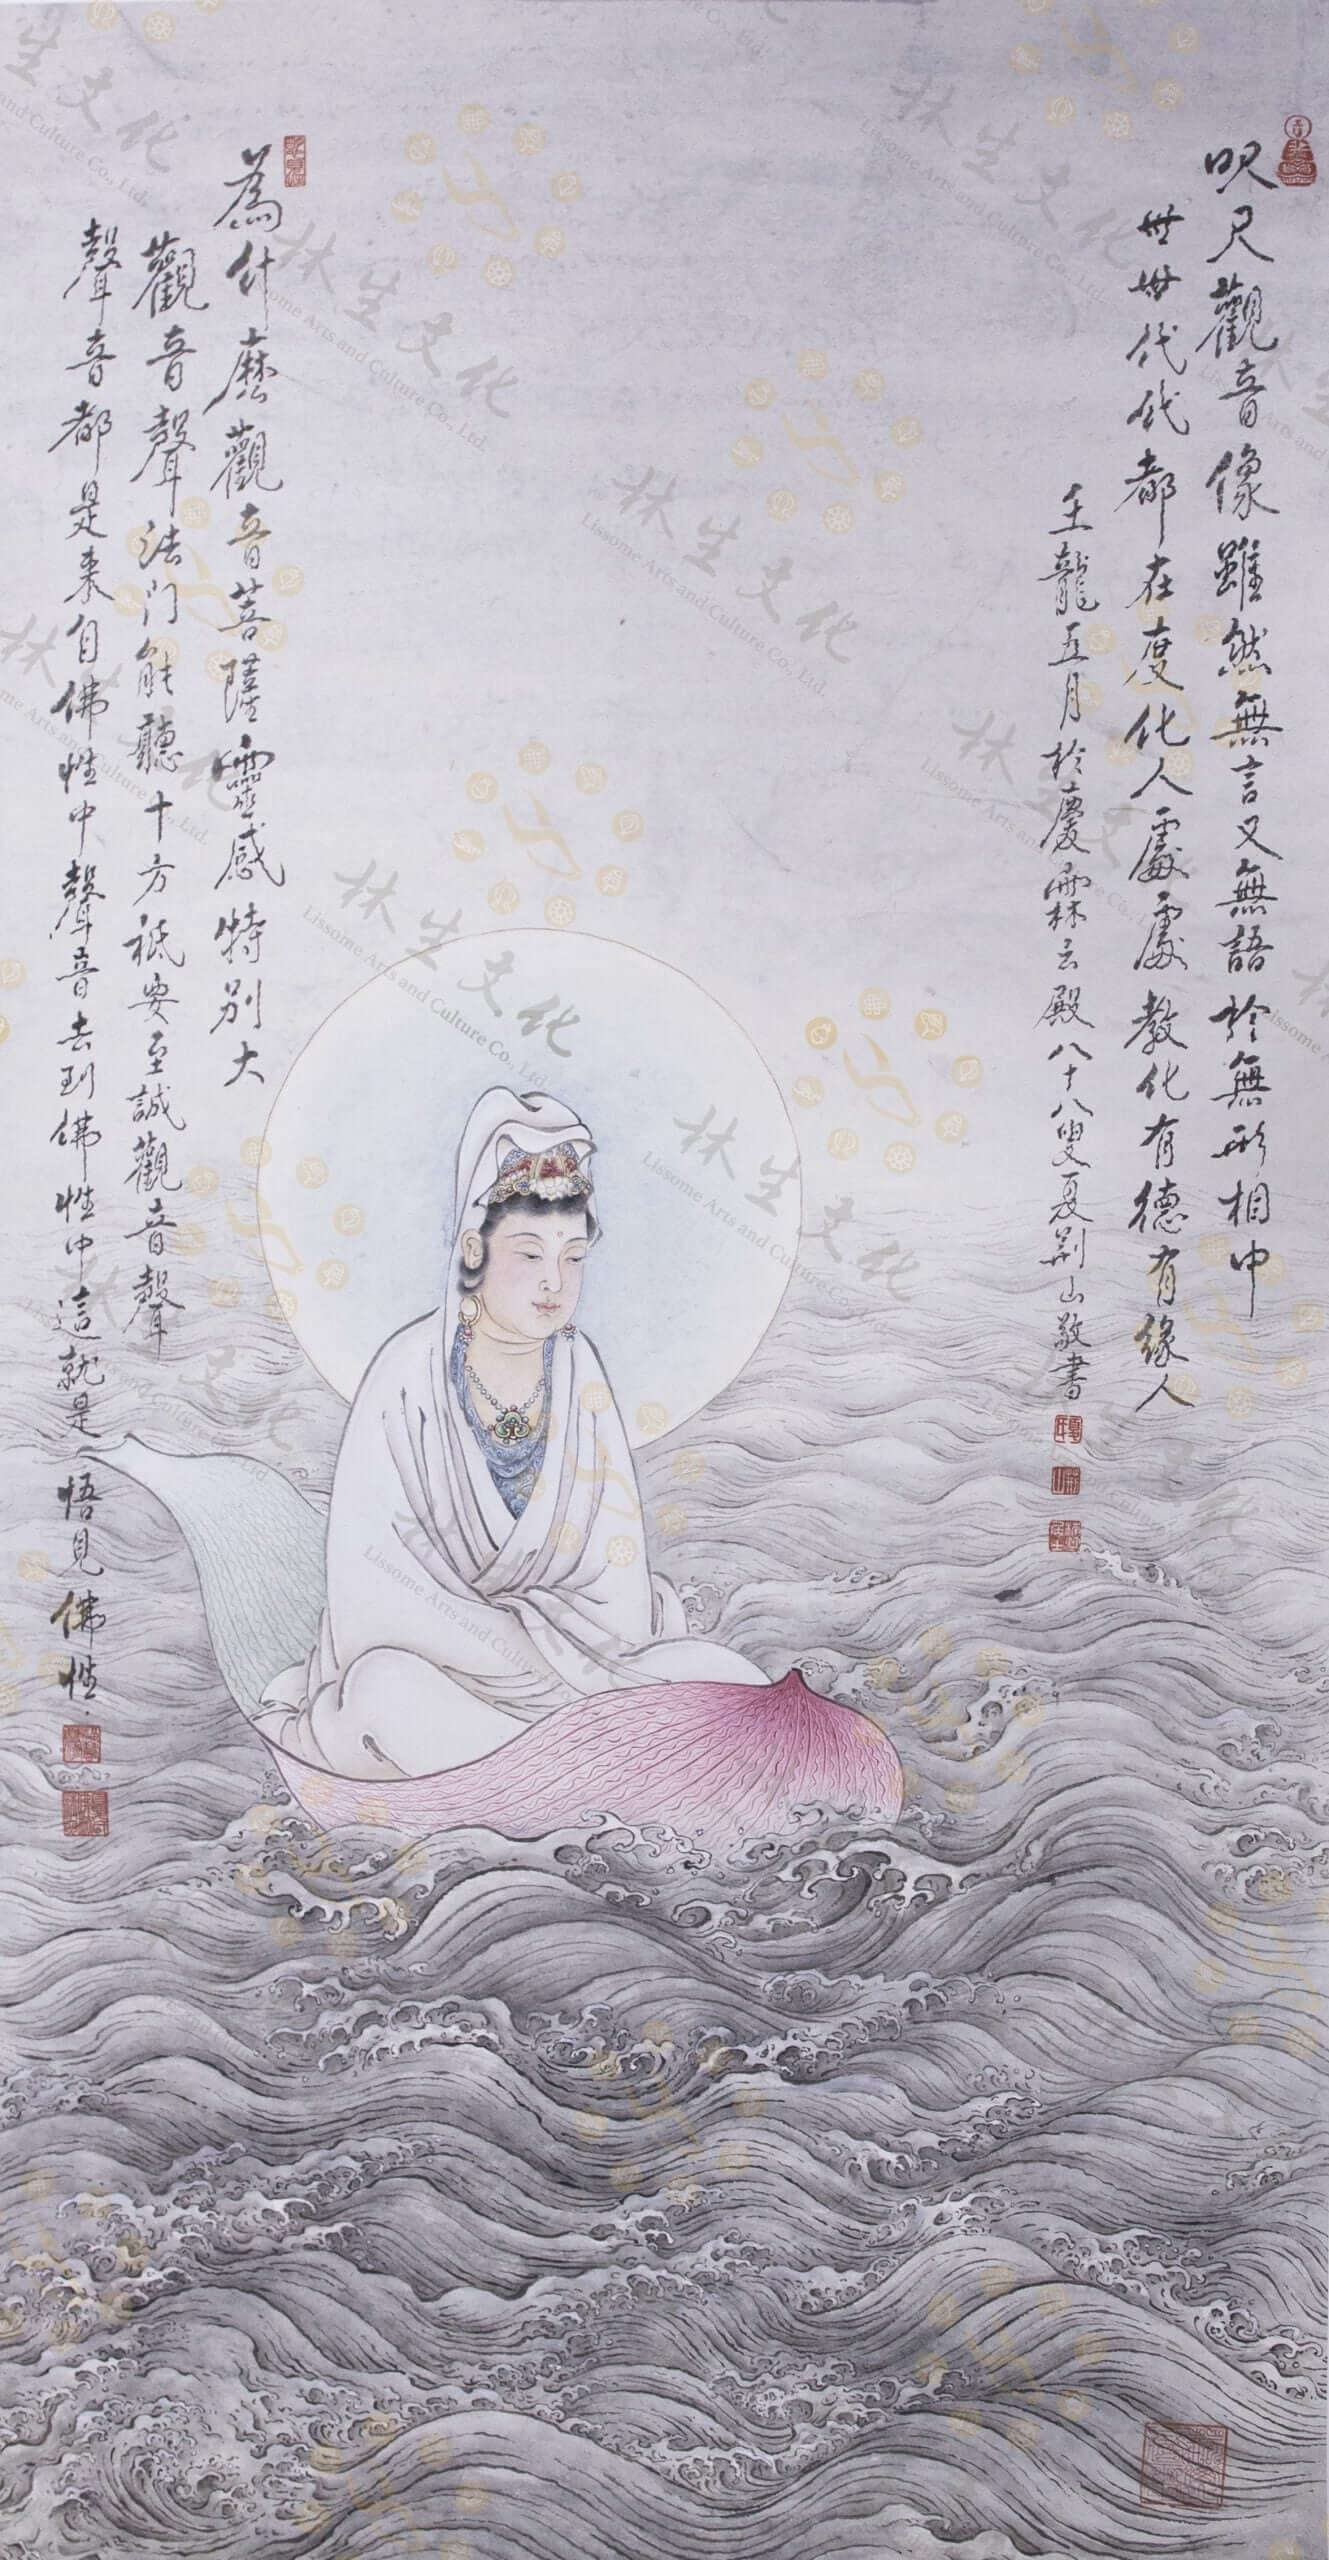 咫尺觀音像雖然無言又無語於無形相中
世世代代都在度化人處處教化有德有緣人
壬龍五月於慶霖云殿八十八叟夏荊山敬書
為什麼觀音菩薩靈感特別大
觀音聲法門能聽十方祗要至誠觀音聲
聲音都是來自佛性中聲音去到佛性中這就是悟見佛性
林生文化
Lissome Arts and Culture Co., Ltd.